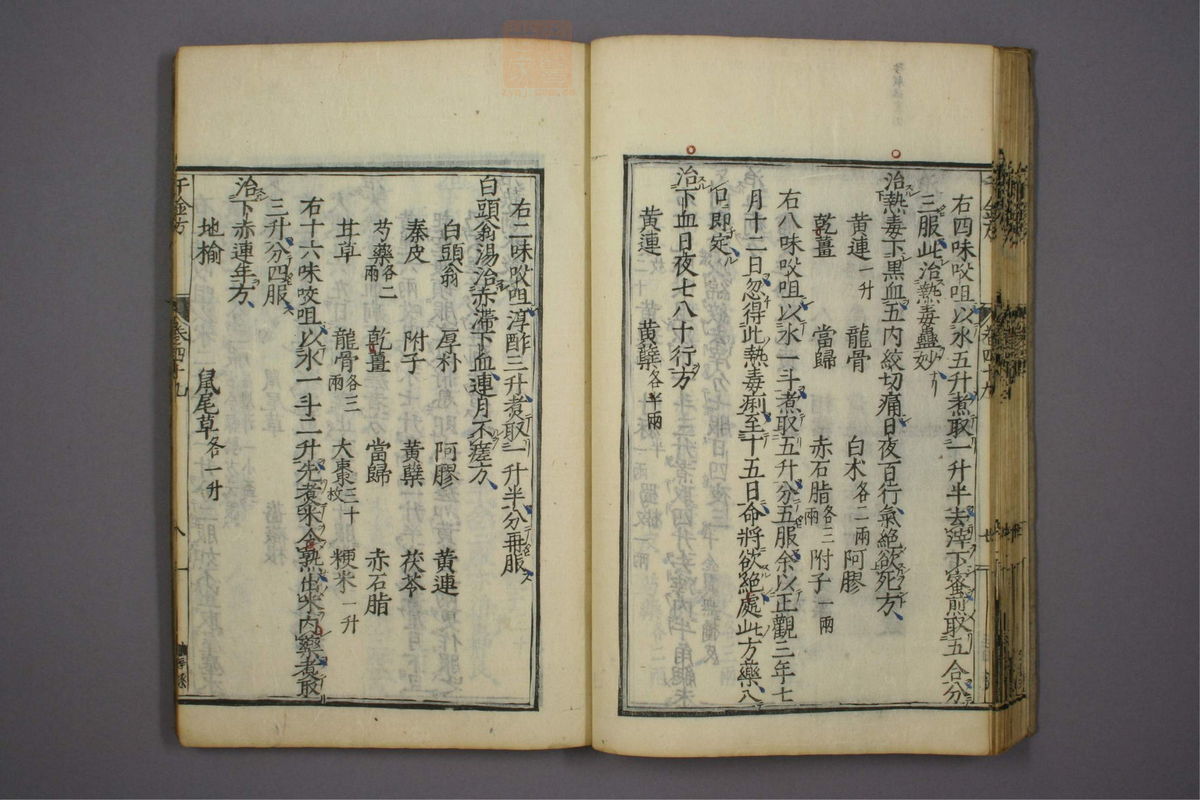 右四味㕮咀以水五升煮取一升半去滓下蜜煎取五合分
三服此治熱毒蠱妙
治熱毒下黑血五内絞切痛日夜百行氣絶欲死方
黄連一升 龍骨 白术各二兩 阿膠
乾薑 當歸 赤石脂各三兩 附子一兩
右八味㕮咀以水一斗煮取五升分五服余以正觀三年七
月十二日忽得此熱毒痢至十五日命將欲絶處此方藥入
口即定
治下血日夜七八十行方
黄連 黄蘗各半兩
右二味㕮咀淳酢三升煮取一升半分再服
白頭翁湯治赤滯下血連月不瘥方
白頭翁 厚朴 阿膠 黄連
秦皮 附子 黄蘗 茯苓
芍藥各二兩 乾薑 當歸 赤石脂
甘草 龍骨各三兩 大棗三十枚 粳米一升
右十六味㕮咀以水一斗二升先煮米令熟出米内藥煮取
三升分四服
治下赤連年方
地榆 鼠尾草各一升
千金方 卷四十九 八